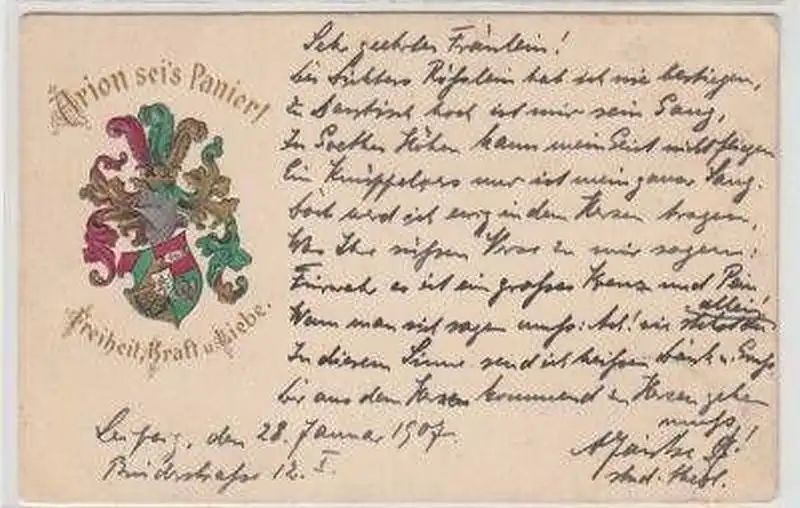 Arion sei's Panier!
Freiheit, Kraft u. Liebe.
Sehr geehrtes Fräulein!
Des Dichters Rößlein hab ich nie bestiegen,
zu hoch ist mir sein Gang,
In Goethes Höhen kann mein Geist nicht fliegen
Ein nur ist mein ganzer Sang:
Doch werd ich ewig in dem Herzen tragen,
Was Ihre süßen Verse zu mir sagen:
Fürwahr es ist ein großes Kreuz und Pein
Wenn man sich sagen muß: Ach! wie allein!
In diesem Sinne send ich heißen Dank u. Gruß
der aus dem Herzen kommend zu Herzen gehen
muß!
Leipzig, den 28. Januar 1907
12. I.
stud. theol.